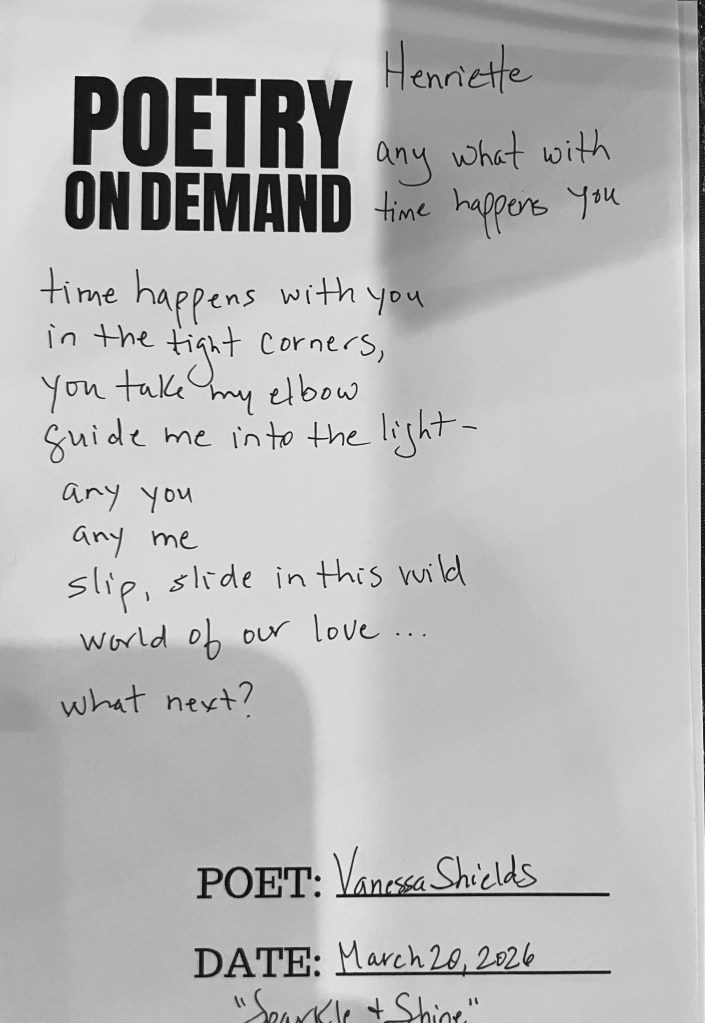 Henriette
POETRY
ON DEMAND
any what with
time happens you
time happens with you
in the tight corners,
you take my elbow
guide me into the light-
any you
any me
slip, slide in this wild
world of our love...
what next?
POET: Vanessa Shields
DATE: March 20, 2026
"Sparkle + Shine"